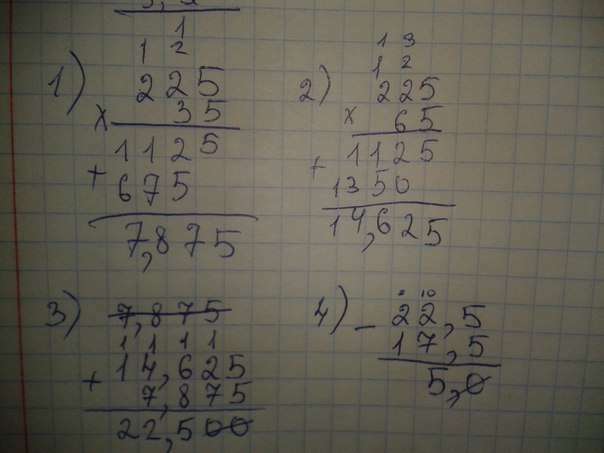 1)
1
1 2
225
× 35
1125
+ 675
7,875
2)
1 3
1 2
225
× 65
+ 1125
1350
14,625
3)
7,875
1 1 1 1
+ 14,625
7,875
22,500
4)
10
- 22,5
17,5
5,0